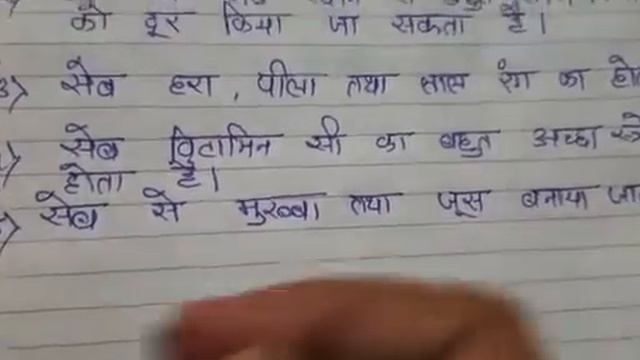 को दूर किया जा सकता है।
3) सेब हरा, पीला तथा लाल रंग का
सेब विटामिन सी का बहुत अच्छा
होता है।
सेब से मुरब्बा तथा जूस बनाया